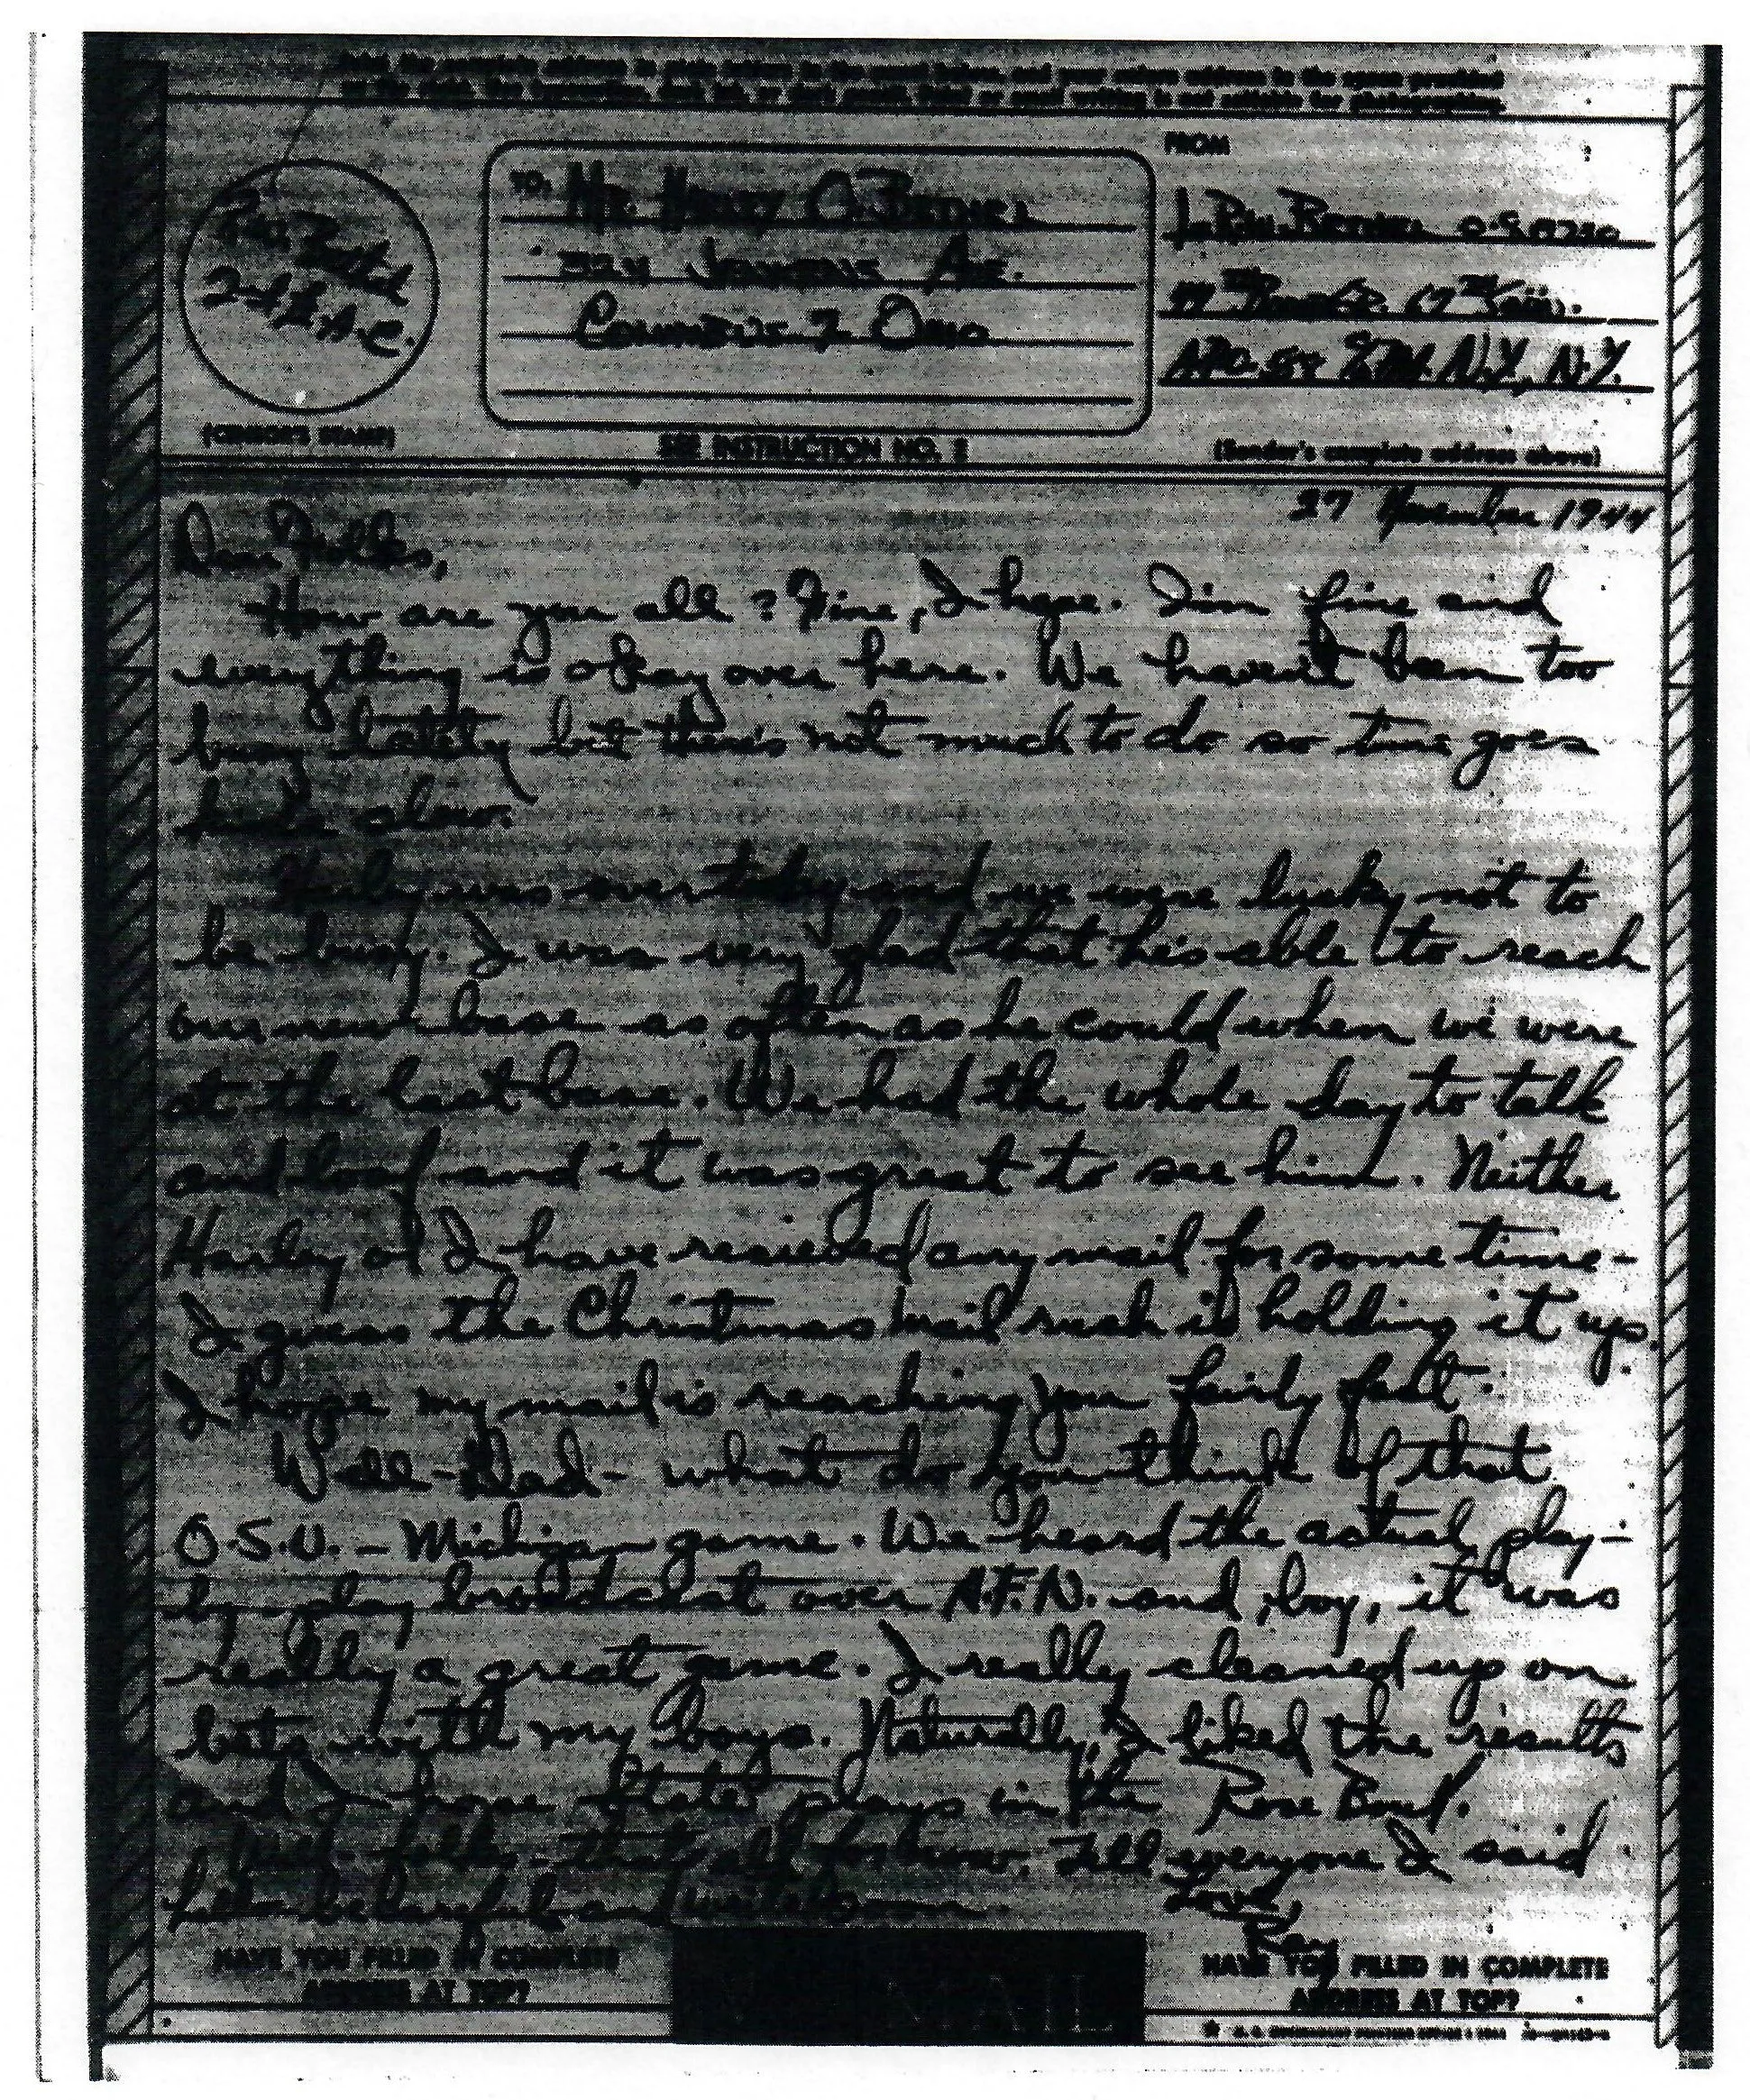 FROM
TO: Mr. Harley O. Bethel
Ave.
Columbus 7 Ohio
N.Y., N.Y.
2nd Lt. A.C.
(CENSOR'S STAMP)
SEE INSTRUCTION NO. 2
(Sender's complete address above)
27 November 1944
Dear Folks,
How are you all? Fine, I hope. I'm fine and
everything is okay over here. We haven't been too
busy lately but there's not much to do so time goes
kinda slow.
Harley was over today and we were lucky not to
be busy. I was very glad that he's able to reach
our new base as often as he could when we were
at the last base. We had the whole day to talk
and loaf and it was great to see him. Neither
Harley or I have recieved any mail for some time-
I guess the Christmas mail rush is holding it up.
I hope my mail is reaching you fairly fast.
Well-Dad- what do you think of that
O.S.U. - Michigan game. We heard the actual play-
by-play broadcast over A.F.N. and, boy, it was
really a great game. I really cleaned up on
bets with my boys. Naturally, I liked the results
and I hope State plays in the Rose Bowl.
Well-folks-that's all for now. Tell everyone I said
hello-be careful and write soon.
Love,
Ray
HAVE YOU FILLED IN COMPLETE
ADDRESS AT TOP?
MAIL
HAVE YOU FILLED IN COMPLETE
ADDRESS AT TOP?